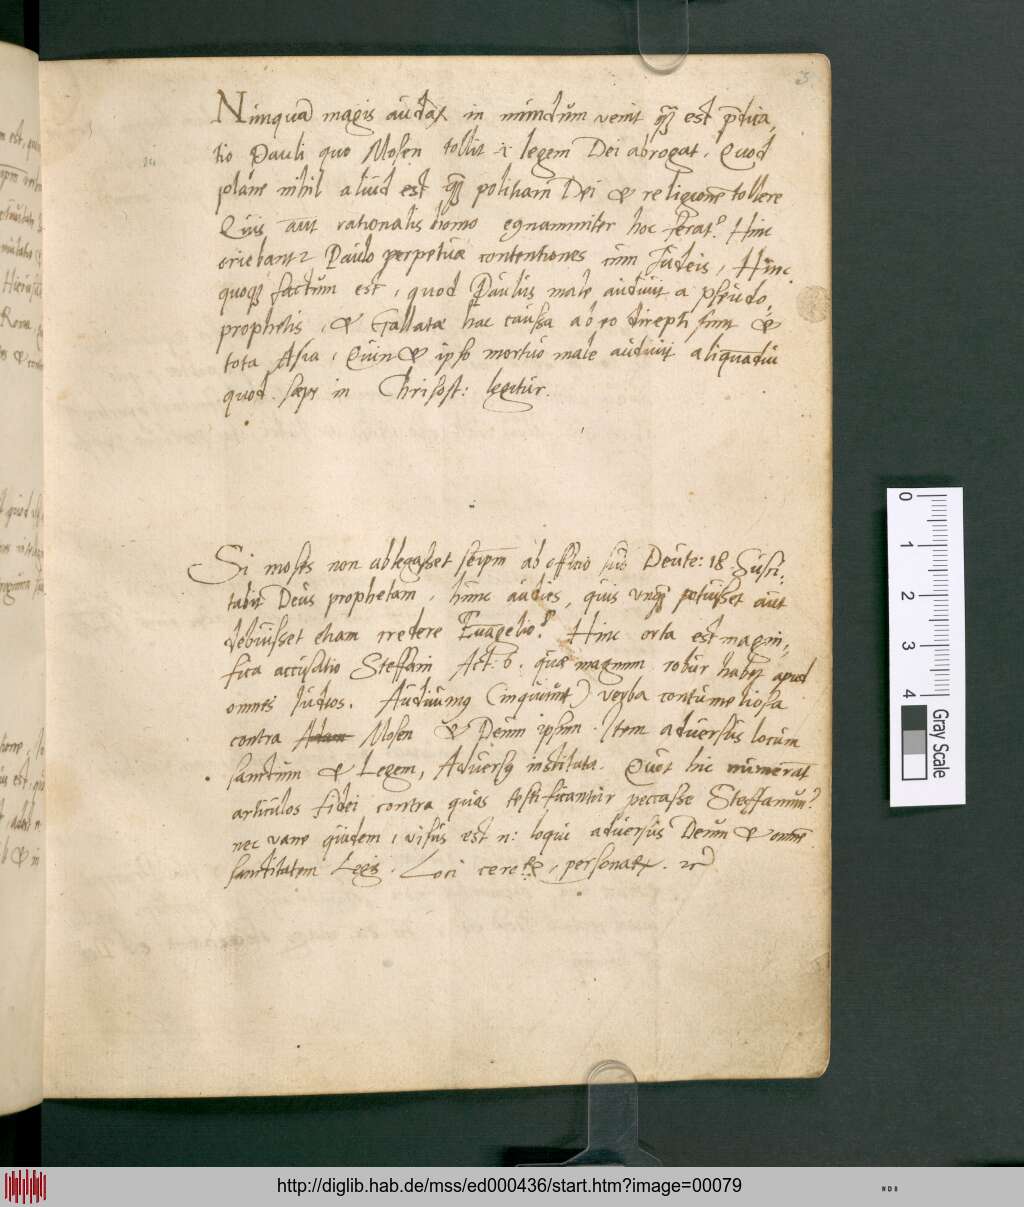 Nūnquā magis aūdax in mūndūm venit qȝ est p̄dica„
tio Pauli quo Mosen tollit & legem Dei abrogat. Quod
plane nihil aliud est qȝ politiam Dei & religionē tollere
Quis aūt rationalis homo eqnammiter hoc ferat? Hinc
oriebant2 Paulo perpetuæ contentiones cum Judeis, Hinc
quoqȝ factum est, quod Paulus male audivit a pseudo„
prophetis, & Gallatæ hac caussa ab eo direpti sunt &
tota Asia, Quin & ipso mortuo male audivit aliquandiu
quod sæpe in Chrisost: legitur.
Si moses non ablegasset seipm̄ ab officio suo Deute: 18. Susci„
tabit Deus prophetam, hunc audies, quis unqȝ potuisset aut
debuisset etiam credere Euāgelio? Hinc orta est magni„
fica accusatio Steffani Act: 6. quæ magnum robur habet apud
omnes Judeos. Audiuimꝰ (inquiunt) verba contumeliosa
contra Mosen & Deum ipsum. Item adversus locum
sanctum & Legem, Adversꝰ instituta. Quot hic numerat
articulos fidei contra quos testificantur peccasse Steffanum?
nec vane quidem, visus est n: loqui adversus Deum & omnē
sanctitatem Legis. Loci cereꝝ, personaꝝ. ⁊c
0
1
2
3
4
Gray Scale
http://diglib.hab.de/mss/ed000436/start.htm?image=00079